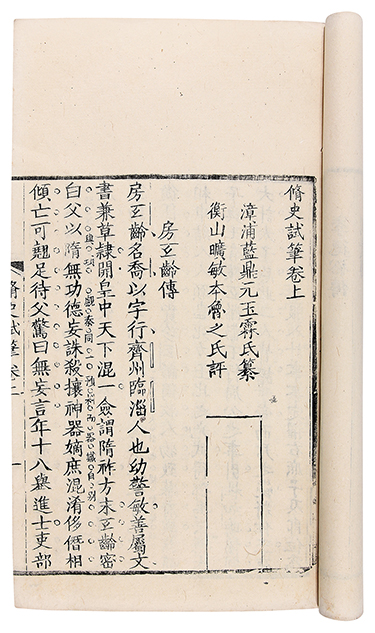 脩史試筆卷上
漳浦藍鼎元玉霖氏纂
衡山曠敏本魯之氏評
房玄齡傳
房玄齡名喬以字行齊州臨淄人也幼警敏善屬文
書兼草隸開皇中天下混一僉謂隋祚方永玄齡密
觀秦同一預料而器識自別
白父以隋無功德妄誅殺攘神器嫡庶混淆侈僭相
傾亡可翹足待父驚曰無妄言年十八舉進士吏部